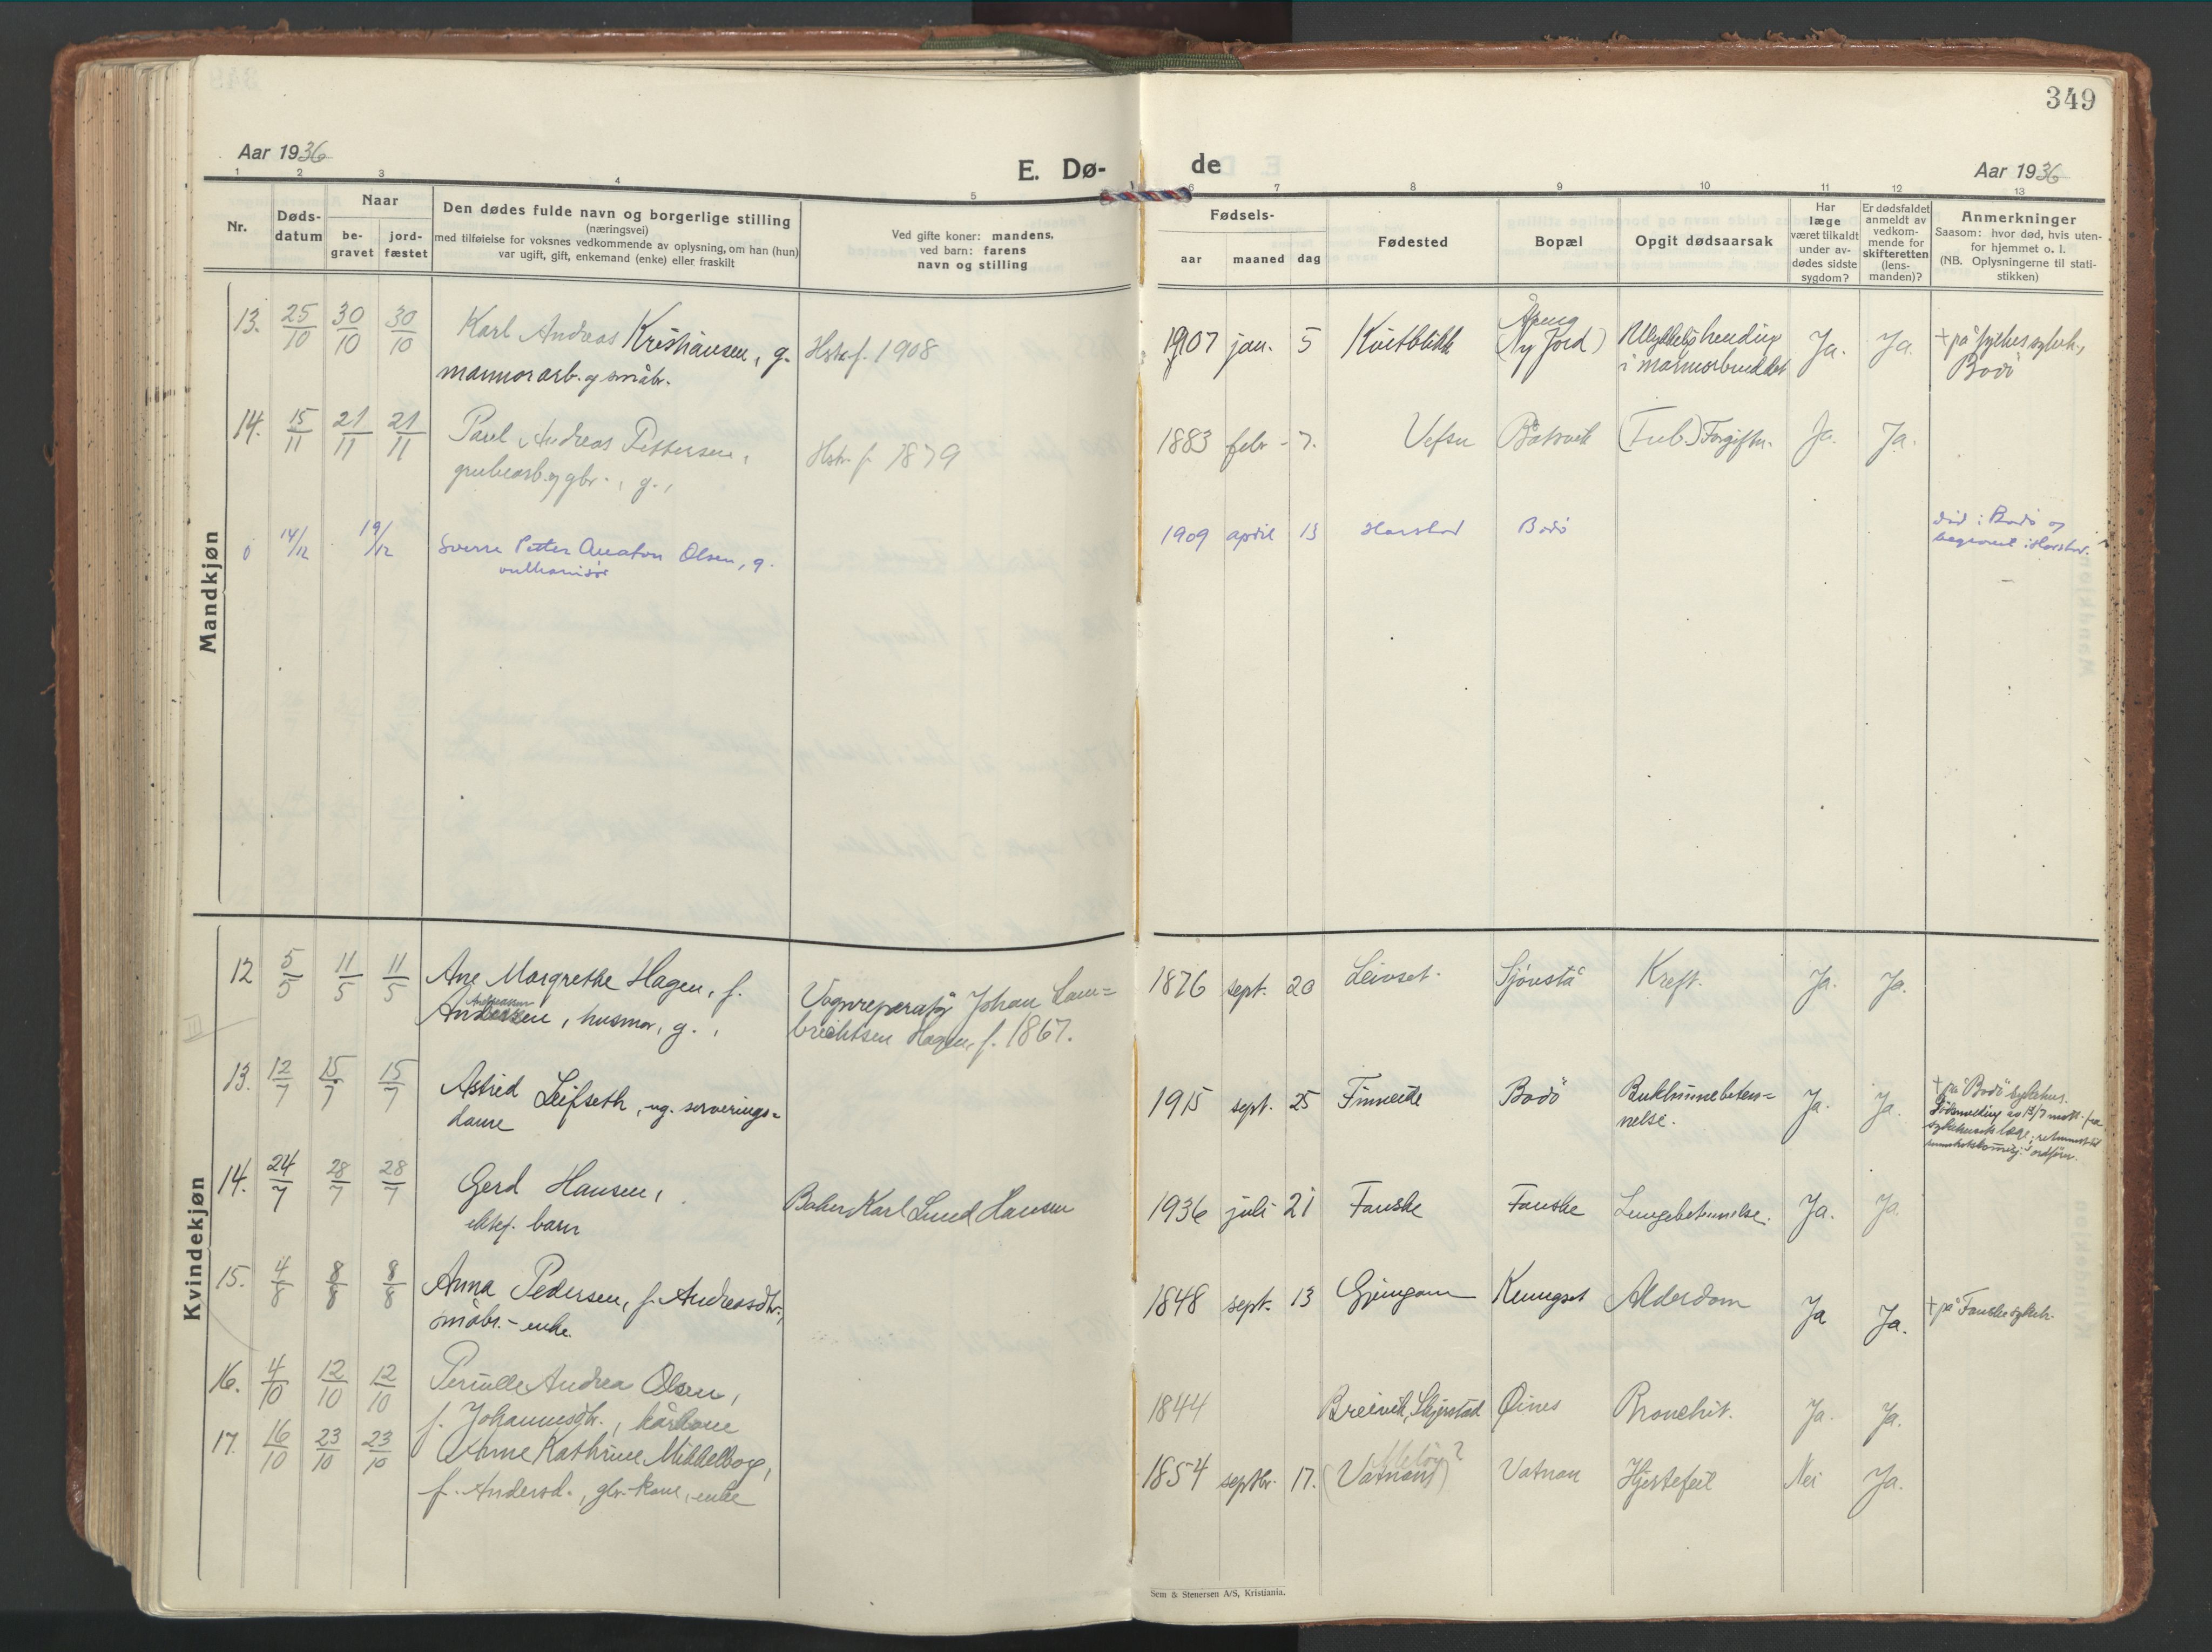 349
Aar 1936
E. Dø-
de
Aar 1936
1 2 3 4 5 6 7 8 9 10 11 12 13
Nr.
Døds-
datum
Naar
be-
gravet
jord-
fæstet
Den dødes fulde navn og borgerlige stilling
(næringsvei)
med tilføielse for voksnes vedkommende av oplysning, om han (hun)
var ugift, gift, enkemand (enke) eller fraskilt
Ved gifte koner: mandens,
ved barn: farens
navn og stilling
Fødsels-
aar maaned dag
Fødested
Bopæl
Opgit dødsaarsak
Har
læge
været tilkaldt
under av-
dødes sidste
sygdom?
Er dødsfaldet
anmeldt av
vedkom-
mende for
skifteretten
(lens-
manden)?
Anmerkninger
Saasom: hvor død, hvis uten-
for hjemmet o. l.
(NB. Oplysningerne til stati-
stikken)
Mandkjøn
13. 25/10 30/10 30/10 Karl Andreas Kristiansen, g.
marmorarb. og småbr.
Hstr. f. 1908
1907 jan. 5 Kvitblikk
(Ny Jord)
Ulykkeshending
i marmorbruddet
Ja. Ja.
+ på fylkessykeh.,
Bodö
14. 15/11 21/11 21/11 Parel Andreas Pettersen,
grubearb. og gbr., g.,
Hstr. f. 1879
1883 febr. 7. Vefsn Båtsvik (Tub.) Forgiftn. Ja. Ja.
0 14/12 19/12 Sverre Petter Anaton Olsen, g.
vulkanisör
1909 april 13 Harstad Bodö
död i Bodö og
begravet i Harstad.
Kvindekjøn
12 5/5 11/5 11/5 Ane Margrethe Hagen, f.
Andersen, husmor, g.,
Vognreparatör Johan Lam=
brechtsen Hagen, f. 1867.
1876 sept. 20 Leivset. Sjönstå Kreft. Ja. Ja.
13. 12/7 15/7 15/7 Astrid Leifseth, ug. serverings=
dame
1915 sept. 25 Finneide Bodö Bukhinnebeten=
nelse.
Ja. Ja.
+ på Bodö sykehus.
Dödsmelding av 13/7 mott. fra
14. 24/7 28/7 28/7 Gerd Hansen,
ektef. barn
Baker Karl Lund Hansen
1936 juli 21 Fauske Fauske Lungebetennelse. Ja. Ja.
15. 4/8 8/8 8/8 Anna Pedersen, f. Andreasdtr.,
småbr.-enke.
1848 sept. 13 Gjemgam Alderdom Ja Ja.
+ på Fauske sykeh.
16. 4/10 12/10 12/10 Pernille Andrea Olsen,
f. Johannesdtr., kårkone
1844 Breivik, Skjerstad Øines Bronchit. Ja. Ja.
17. 16/10 23/10 23/10 Anne Kathrine Middelborg,
f. Andersd., gbr.-kone, enke
1854 septbr. 17. (Vatnan) Meløy? Vatnan Hjertefeil Nei Ja.
Sem & Stenersen A/S, Kristiania.